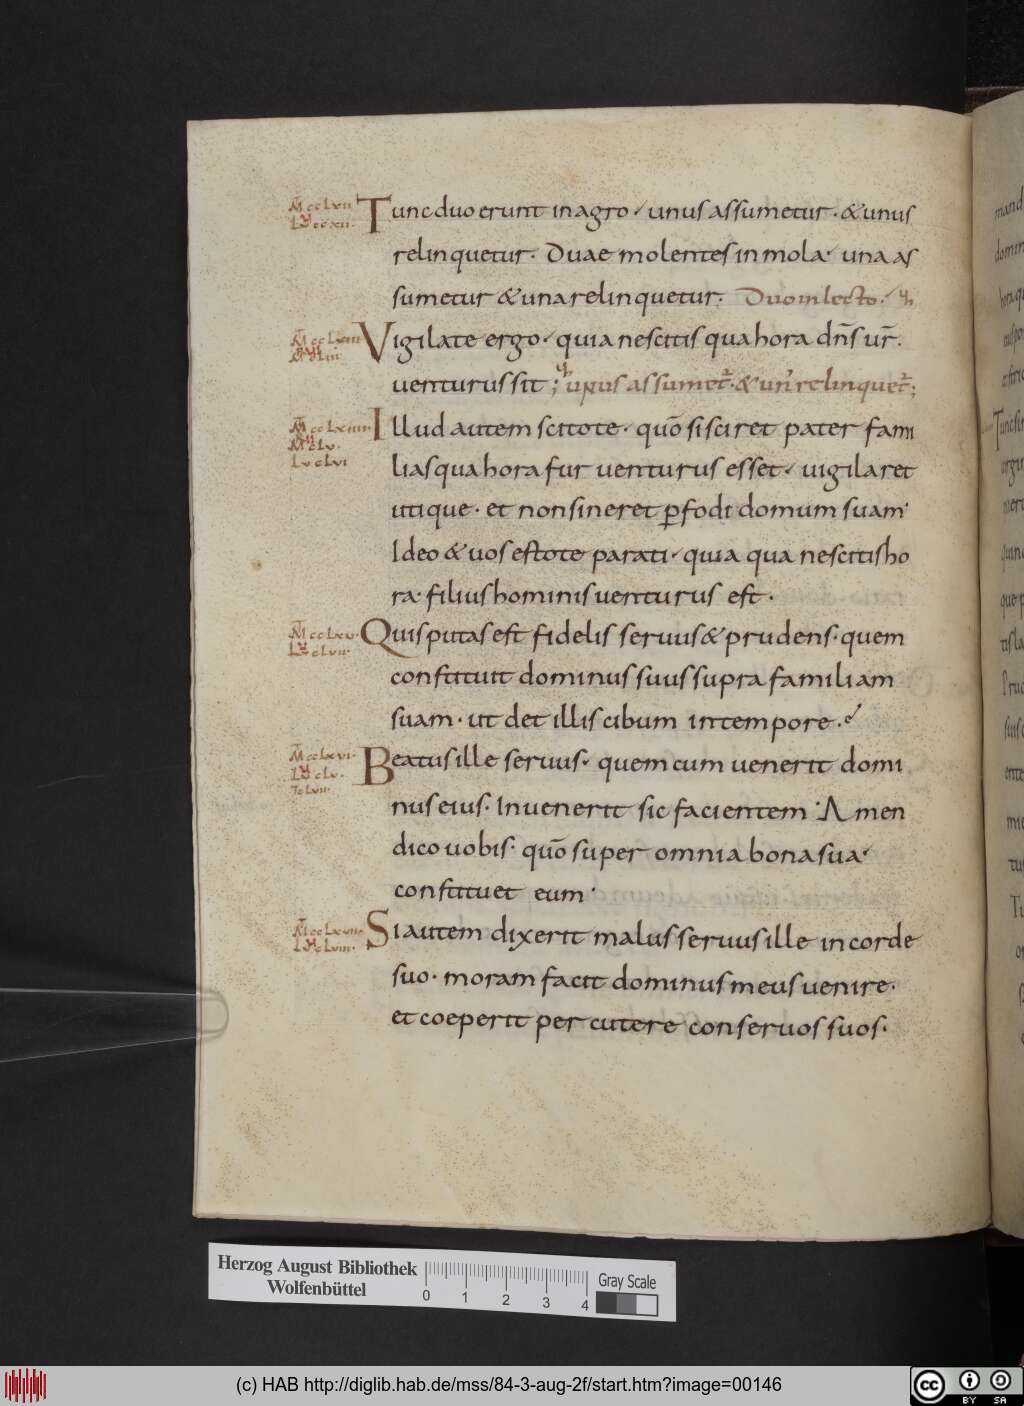 Tunc duo erunt in agro. unus assumetur. & unus
relinquetur. Duae molentes in mola. una as
sumetur & una relinquetur. Duo in lecto.
Vigilate ergo. quia nescitis qua hora dn̄s ur̄.
uenturus sit; unus assumet̄. & un' relinquet̄;
Illud autem scitote. quō si sciret pater fami
lias qua hora fur uenturus esset. uigilaret
utique. et non sineret ꝑfodi domum suam
Ideo & uos estote parati. quia qua nescitis ho
ra. filius hominis uenturus est.
Quis putas est fidelis seruus & prudens. quem
constituit dominus suus supra familiam
suam. ut det illis cibum in tempore.
Beatus ille seruus. quem cum uenerit domi
nus eius. Inuenerit sic facientem. Amen
dico uobis. quō super omnia bona sua.
constituet eum.
Si autem dixerit malus seruus ille in corde
suo. moram facit dominus meus uenire.
et coeperit percutere conseruos suos.
Herzog August Bibliothek
Wolfenbüttel
0 1 2 3 4
Gray Scale
(c) HAB http://diglib.hab.de/mss/84-3-aug-2f/start.htm?image=00146
cc BY SA